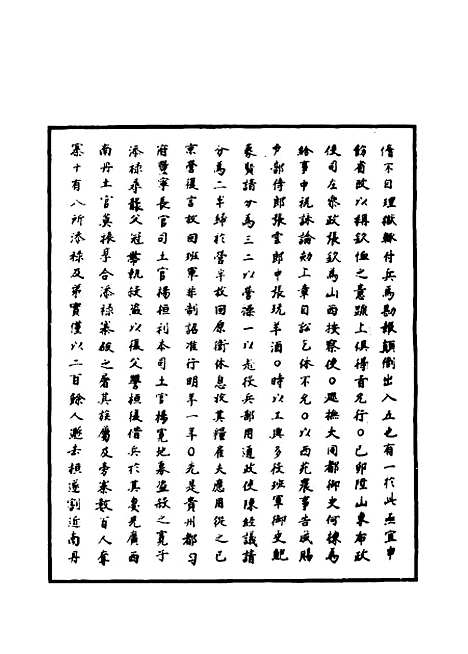 偕不目理獄縣付兵馬勘報顛倒出入五也有一於此亟宜申
飭省改以稱欽恤之意疏上俱得旨允行○己卯陞山東布政
使司左參政張欽為山西按察使○巡撫大同都御史何棟為
給事中祝詠論劾上章自訟乞休不允○以西苑農事告成賜
戶部侍郎張雲郎中張玩羊酒○時以工興多役班軍御史鮑
象賢請分為三二以營操一以赴役兵部用通政使陳經議請
分為二半歸於營半放回原衛休息扱其糧雇夫應用從之已
京營復言放回班軍非制詔准行明年一年○先是貴州都勻
府豐寧長官司土官楊桓利本司土官楊寬地募盜殺之寬子
添祿乘襲父冠帶執殺盜以復父讐桓復借兵於其妻兄廣西
南丹土官莫振亨合添祿寨破之屠其族屬及旁寨數百人奪
寨十有八所添祿及弟實僅以二百餘人遯去桓遂割近南丹